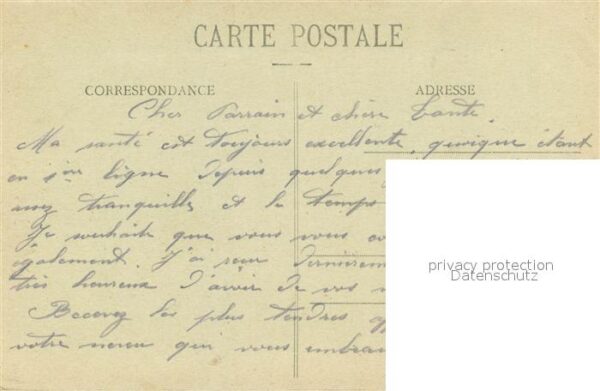 CARTE POSTALE
CORRESPONDANCE
ADRESSE
Cher Parrain et chère tante,
Ma santé est toujours excellente, quoique étant
en 1ère ligne depuis quelques
assez tranquille et le temps
Je souhaite que vous vous
également. J'ai reçu
très heureux d'avoir de vos
Recevez les plus tendres
votre neveu qui vous
privacy protection
Datenschutz